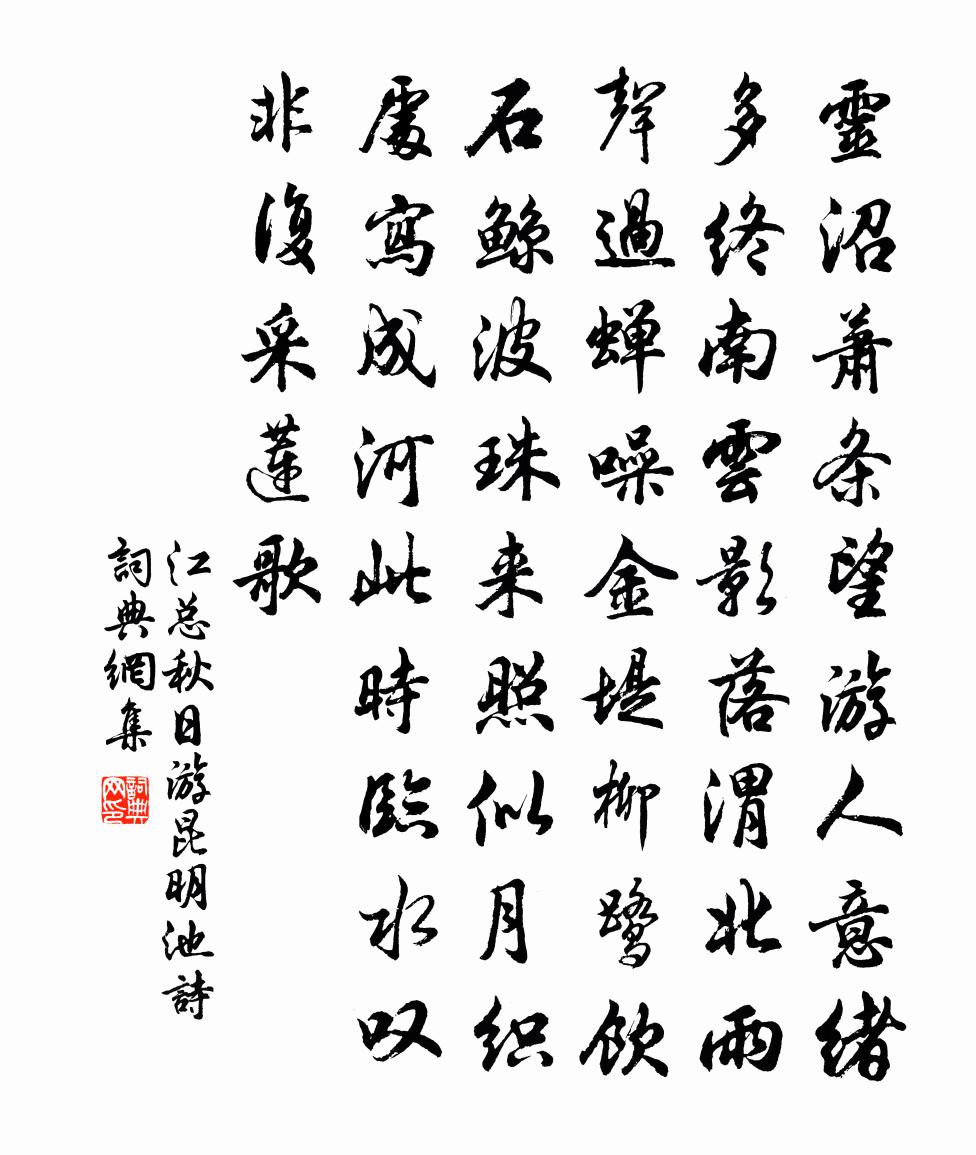 靈沼萧条望游人意绪
多终南雲影落渭北雨
聲過蝉噪金堤柳鹭飲
石鲸波珠来照似月织
處寫成河此時臨水叹
非復采蓮歌
江总秋日游昆明池詩
詞典網集
詞典网印